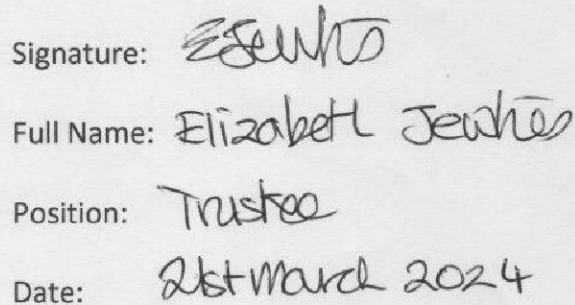 Signature: EJewkes
Full Name: Elizabeth Jewkes
Position: Trustee
Date: 21st March 2024